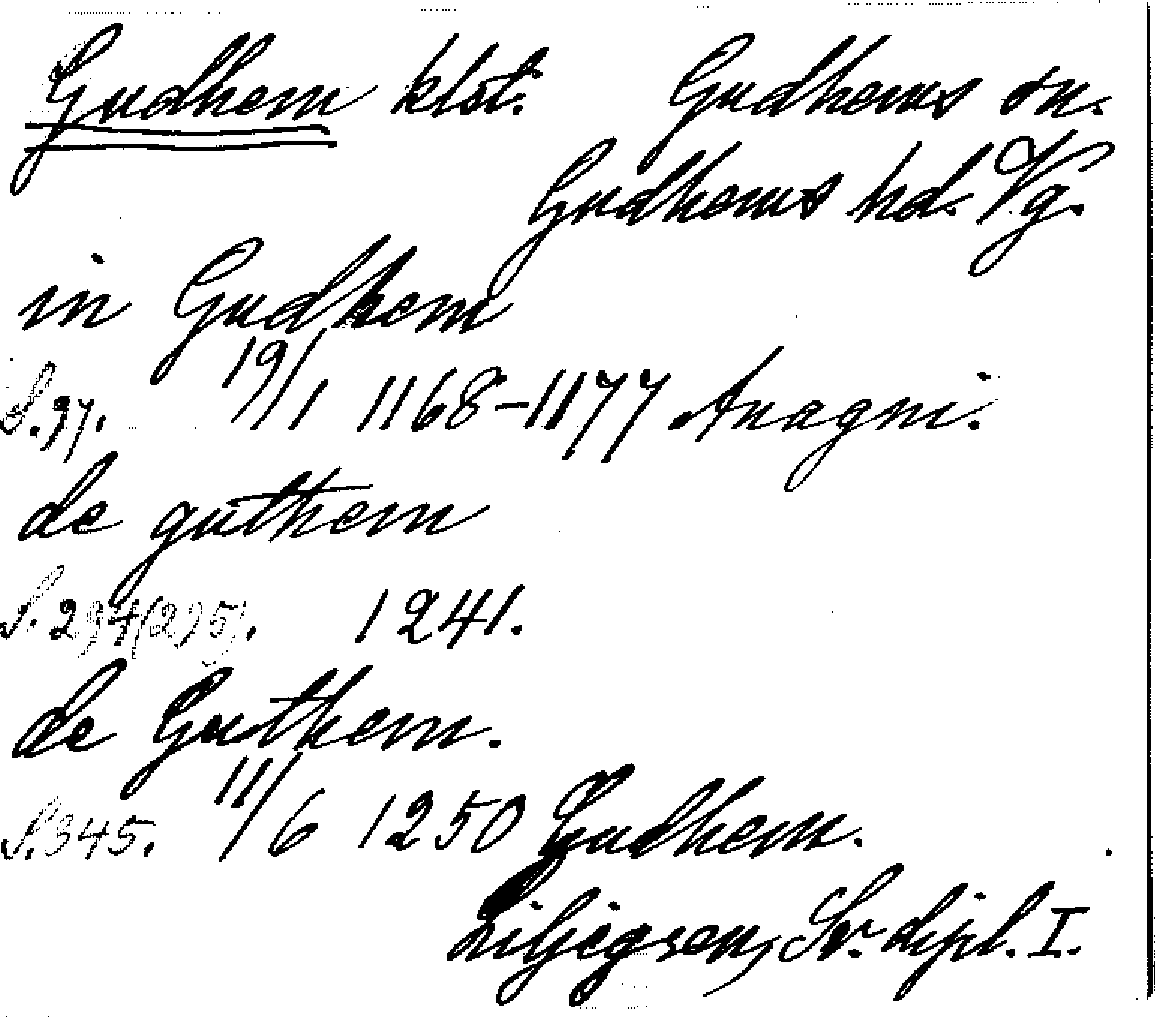 Gudhem klot. Gudhems sn.
Gudhems hd. Vg.
in Gudhem
S. 97. 19/1 1168-1177 Anagni.
de guthem
S. 294(295). 1241.
de Guthem.
S. 345. 11/6 1250 Gudhem.
Liljegren, Sv. dipl. I.